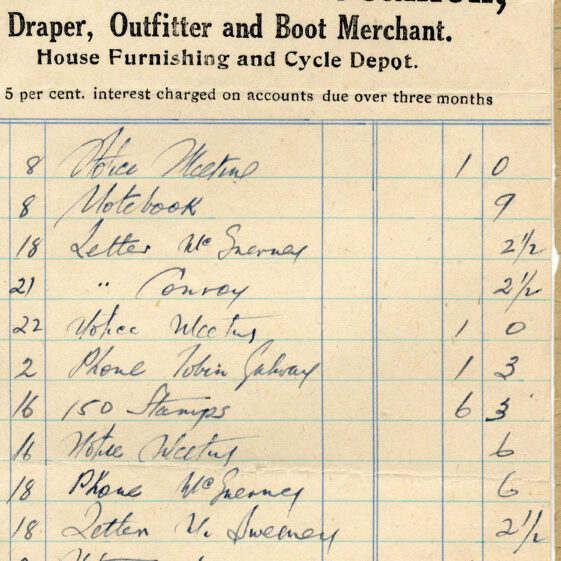 Draper, Outfitter and Boot Merchant.
House Furnishing and Cycle Depot.
5 per cent. interest charged on accounts due over three months
8 Notice Meeting 1 0
8 Notebook 9
18 Letter McGuerney 2½
21 " Conroy 2½
22 Notice Meeting 1 0
2 Phone Tobin Galway 1 3
16 150 Stamps 6 3
16 Notice Meeting 6
18 Phone McGuerney 6
18 Letter M. Sweeney 2½